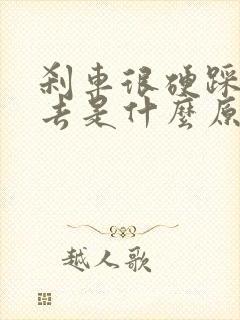 刹車很硬踩
去是什麼原
越人歌